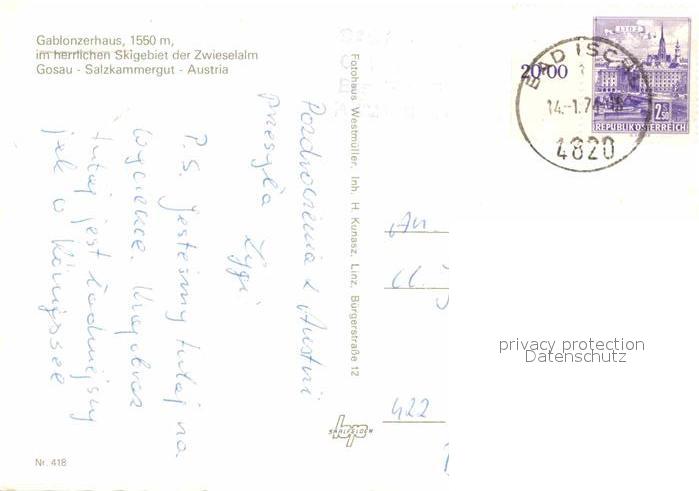 Gablonzerhaus, 1550 m,
im herrlichen Skigebiet der Zwieselalm
Gosau - Salzkammergut - Austria
Pozdrowienia z Austrii
Przesyła Zygi
P.S. Jesteśmy tutaj na
wycieczce. Krajobraz
tutaj jest ładniejszy
jak w Königssee
Nr. 418
Fotohaus Westmüller, Inh. H. Kunasz, Linz, Bürgerstraße 12
An
422
SAALFELDEN
20:00
LINZ
2.50
REPUBLIK ÖSTERREICH
BAD ISCHL
14.-1.74
4820
privacy protection
Datenschutz